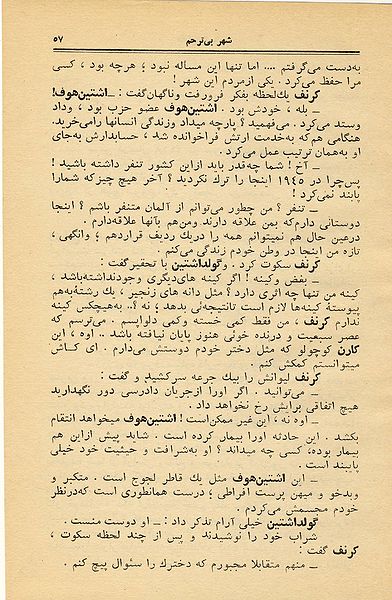 شهر بی‌ترحم
۵۷
به‌دست می‌گرفتم .... اما تنها این مساله نبود ؛ هرچه بود ، کسی
مرا حفظ می‌کرد . یکی ازمردم این شهر !
کرنف یك‌لحظه بفکر فرورفت وناگهان‌گفت : ــ اشتین‌هوف!
ــ بله ، خودش بود . اشتین‌هوف عضو حزب بود ، وداد
وستد می‌کرد . می‌فهمید؟ پارچه میداد وزندگی انسانها رامی‌خرید.
هنگامی هم‌که به‌خدمت ارتش فراخوانده شد ، حسابدارش به‌جای
او به‌همان ترتیب عمل می‌کرد .
ــ آخ ! شما چه‌قدر باید ازاین کشور تنفر داشته باشید !
پس‌چرا در ۱۹۴۵ اینجا را ترك نکردید ؟ آخر هیچ چیزکه شمارا
پابند نمی‌کرد !
ــ تنفر ؟ من چطور می‌توانم از آلمان متنفر باشم ؟ اینجا
دوستانی دارم‌که بمن علاقه دارند ومن‌هم بآنها علاقه‌دارم .
درعین حال هم نمیتوانم همه را دریك ردیف قراردهم ؛ وانگهی ،
تازه من اینجا در وطن خودم زندگی می‌کنم .
کرنف سکوت کرد . وگولداشتین با تحقیر گفت :
ــ بغض وکینه ! اگر کینه های‌دیگری وجودنداشته‌باشد ،
کینه من تنها چه اثری دارد؟ مثل دانه های زنجیر ، یك رشتهٔ‌به‌هم
پیوستهٔ کینه‌ها لازم است تانتیجه‌ئی بدهد ، نه ؟.. به‌هیچکس کینه
ندارم کرنف ، من فقط کمی خسته وکمی دلواپسم . می‌ترسم که
عصر سبعیت و درنده خوئی هنوز پایان نیافته باشد .. اوه ، این
کارن کوچولو که مثل دختر خودم دوستش می‌دارم . ای کاش
میتوانستم کمکش کنم .
کرنف لیوانش را بیك جرعه سرکشید و گفت :
ــ می‌توانید . اگر اورا ازجریان دادرسی دور نگهدارید
هیچ اتفاقی برایش رخ نخواهد داد .
ــ اوه نه ، این غیر ممکن‌است ! اشتین‌هوف میخواهد انتقام
بکشد . این حادثه اورا بیمار کرده است . شاید پیش ازاین هم
بیمار بوده، کسی چه میداند ؟ او به‌شرافت و حیثیت خود خیلی
پابند است .
ــ این اشتین‌هوف مثل یك قاطر لجوج است . متکبر و
وبدخو و میهن پرست افراطی ؛ درست همانطوری است که‌درنظر
خودم مجسمش می‌کردم .
گولداشتین خیلی آرام تذکر داد : ــ او دوست منست .
شراب خود را نوشیدند و پس از چند لحظه سکوت ،
کرنف گفت :
ــ منهم متقابلا مجبورم که دخترك را سئوال پیچ کنم .